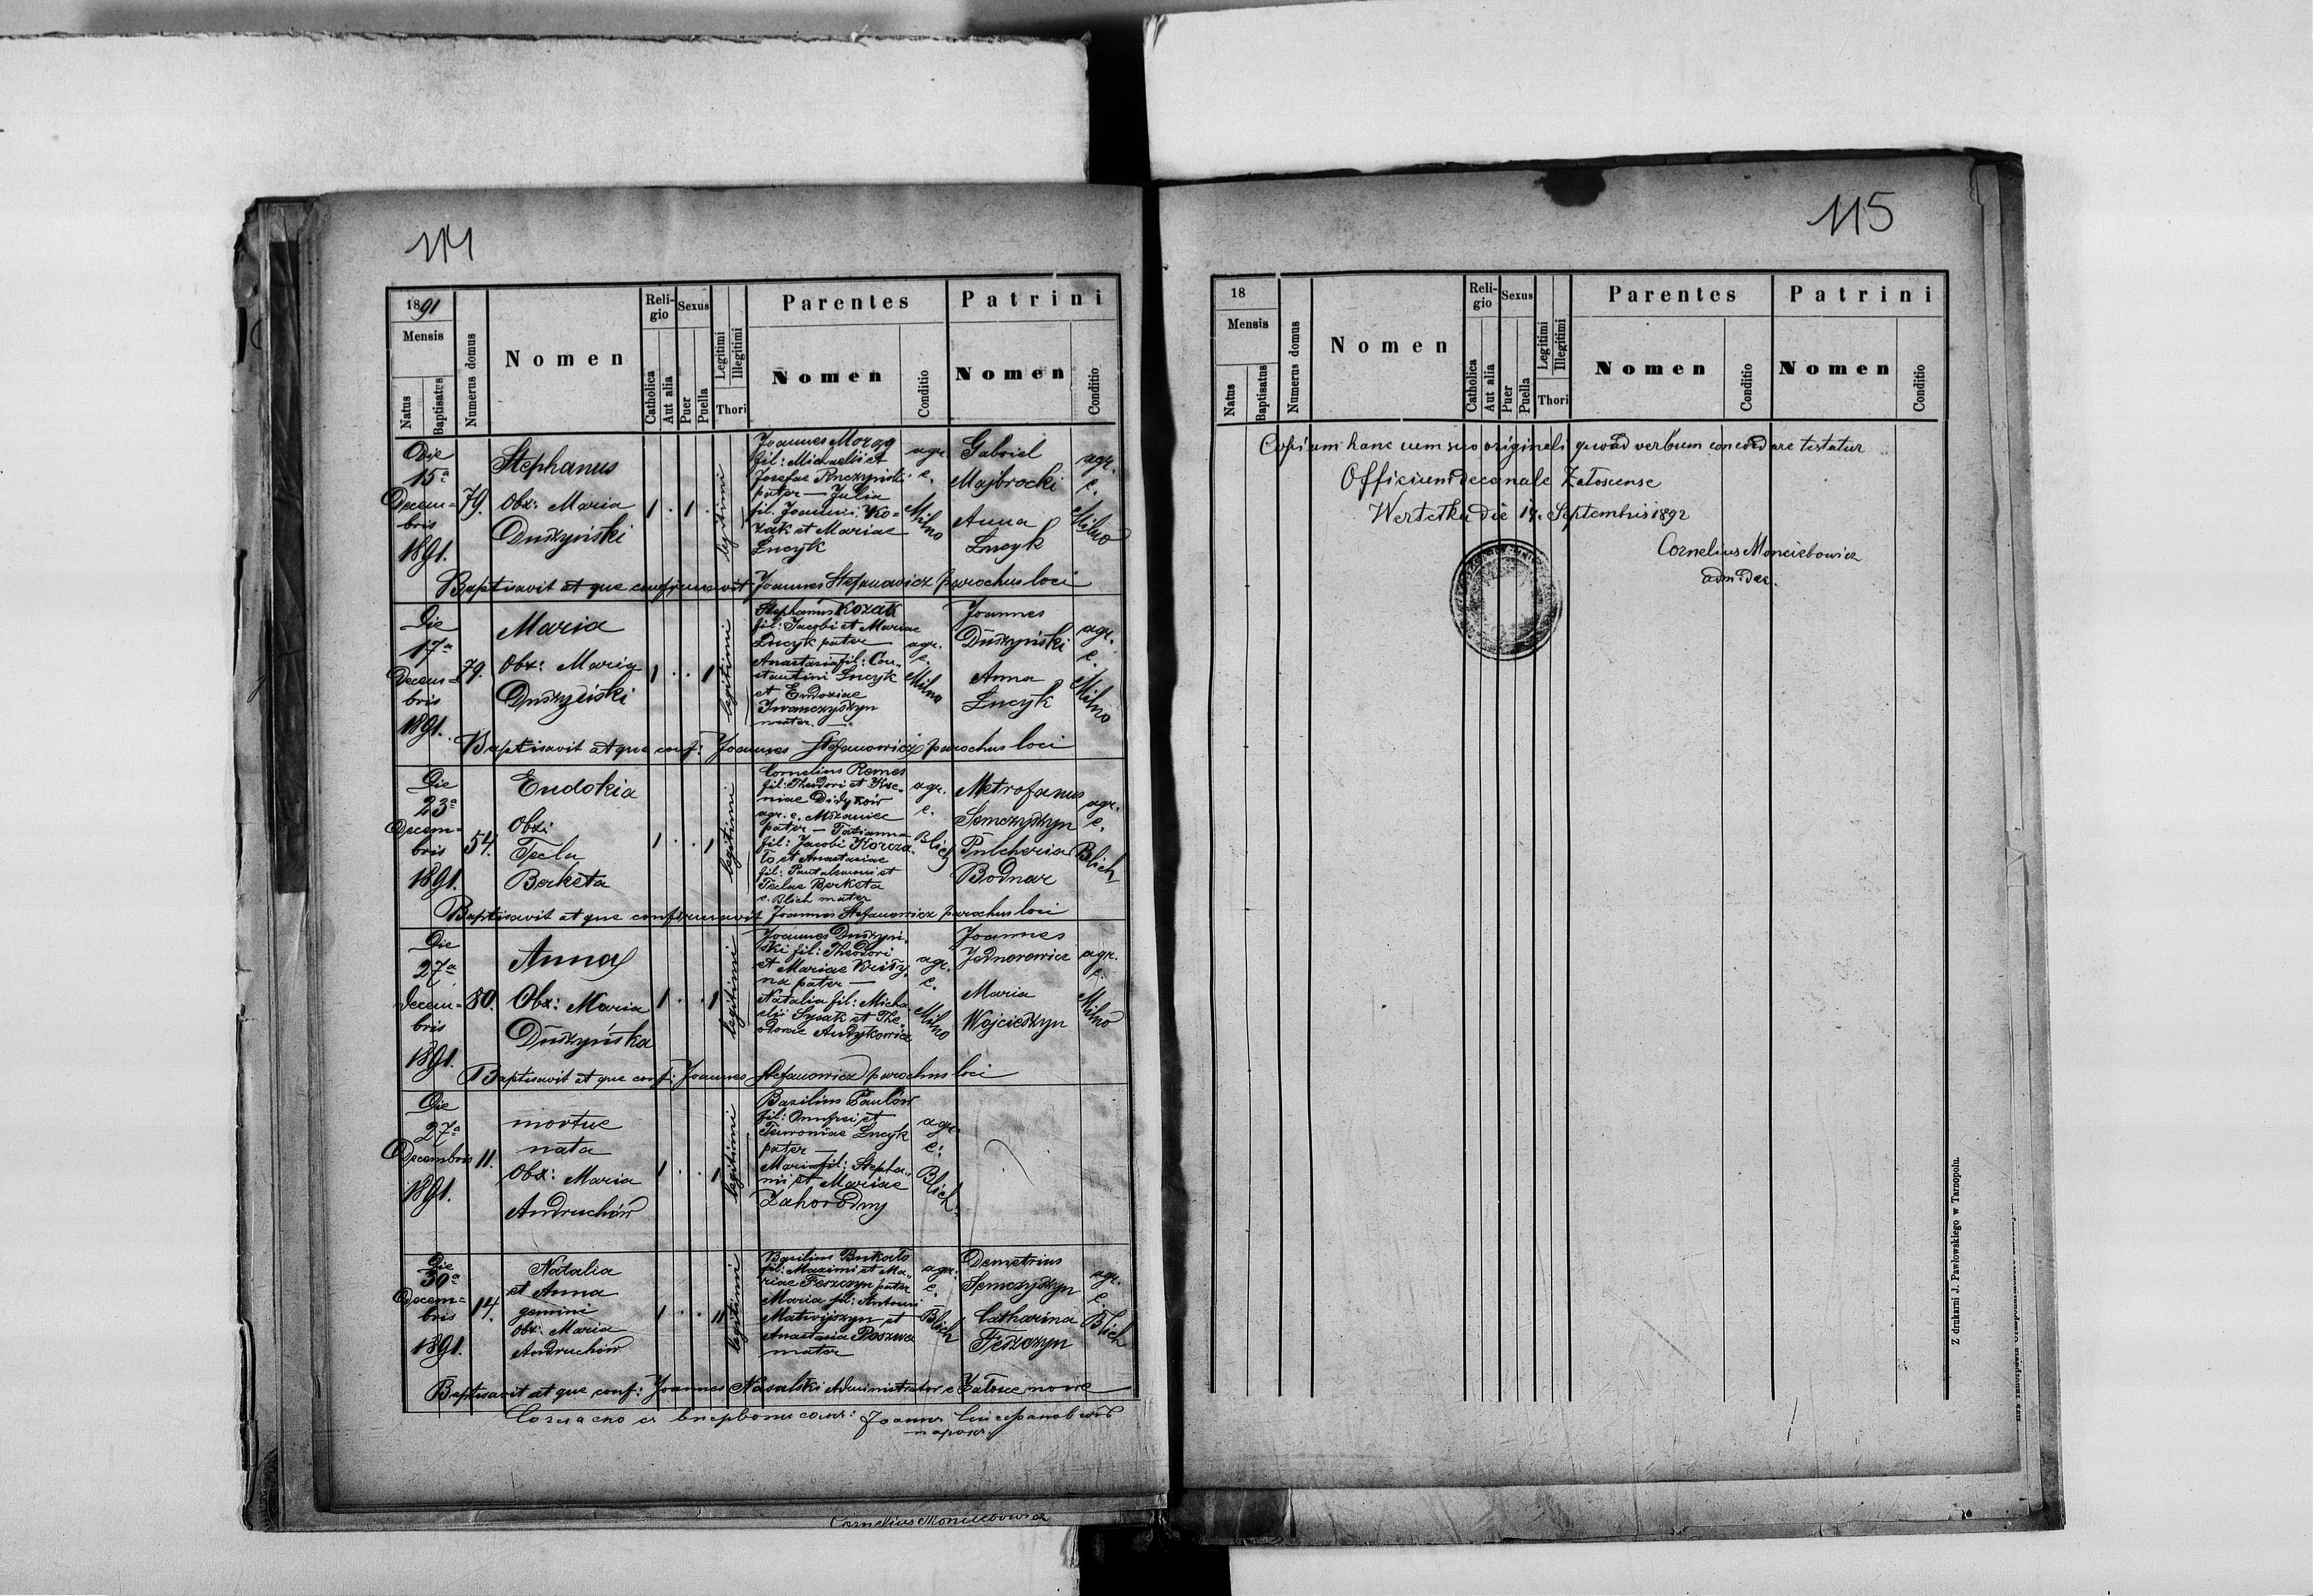 114
1891
Mensis
Natus
Baptisatus
Numerus domus
Nomen
Religio
Catholica
Aut alia
Sexus
Puer
Puella
Legitimi
Illegitimi
Thori
Parentes
Nomen
Conditio
Patrini
Nomen
Conditio
Die
15a
Decem=
bris
1891.
79.
Stephanus
Obx: Maria
Duszyński
1 . 1 .
legitimi
Joannes Moroz
fil: Michaelis et
Josefae Ruczyński
pater — Julia
fil. Joannis Ko=
zak et Mariae
Łucyk
agr.
c.
Milno
Gabriel
Majbrocki
Anna
Łucyk
agr.
c.
Milno
Baptisavit atque confirmavit Joannes Stefanowicz parochus loci
Die
17a
Decem=
bris
1891.
79.
Maria
Obx: Maria
Duszyński
1 . . 1
legitimi
Stephanus Kozak
fil: Jacobi et Mariae
Łucyk pater
Anastasia fil: Con=
stantini Łucyk
et Eudoxiae
Iwanczyszyn
mater. —
agr.
c.
Milno
Joannes
Duszyński
Anna
Łucyk
agr.
c.
Milno
Baptisavit atque conf: Joannes Stefanowicz parochus loci
Die
23a
Decem=
bris
1891.
54.
Eudokia
Obx:
Tecla
Berketa
1 . . 1
legitimi
Cornelius Remes
fil: Theodori et Xe=
niae Didyków
agr. c. Mszaniec
pater — Tatianna
fil: Jacobi Korcza
ło et Anastasiae
fil: Pantaleonis et
Teclae Berketa
c. Blich mater
agr.
c.
Blich
Metrofanus
Semczyszyn
Pulcheria
Bodnar
agr.
c.
Blich
Baptisavit atque confirmavit Joannes Stefanowicz parochus loci
Die
27a
Decem=
bris
1891.
80.
Anna
Obx: Maria
Duszyńska
1 . . 1
legitimi
Joannes Duszyń=
ski fil: Theodori
et Mariae
na pater —
Natalia fil: Micha
elis Sysak et The=
odorae Andykowicz
agr.
c.
Milno
Joannes
Jednorowicz
Maria
Wojcieszyn
agr.
c.
Milno
Baptisavit atque conf: Joannes Stefanowicz parochus loci
Die
27a
Decembris
1891.
11.
mortue
nata
Obx: Maria
Andruchów
1 . . 1
legitimi
Basilius Pawlów
fil: Onufrei et
Fewroniae Łucyk
pater —
Maria fil: Stepha=
nis et Mariae
Zahorodny
agr.
c.
Blich.
Die
30a
Decem=
bris
1891.
14.
Natalia
et Anna
gemini
Obx: Maria
Andruchów
1 . . 11
legitimi
Basilius Bukało
fil: Maximi et Ma=
riae Feszczyn pater
Maria fil: Antonii
Matwijszyn et
Anastasia Roszwa
mater
agr.
c.
Blich
Demetrius
Semczyszyn
Catharina
Feszczyn
agr.
c.
Blich
Baptisavit atque conf: Joannes Nasalski Administrator c Załosce nowe
Cornelius Moncibowicz
115
18
Mensis
Natus
Baptisatus
Numerus domus
Nomen
Religio
Catholica
Aut alia
Sexus
Puer
Puella
Legitimi
Illegitimi
Thori
Parentes
Nomen
Conditio
Patrini
Nomen
Conditio
Copiam hanc cum suo originali quoad verbum concordare testatur
Officium decanale Załoscense
Wertelka die 19. Septembris 1892
Cornelius Moncibowicz
adm. dec.
Z drukarni J. Pawłowskiego w Tarnopolu.